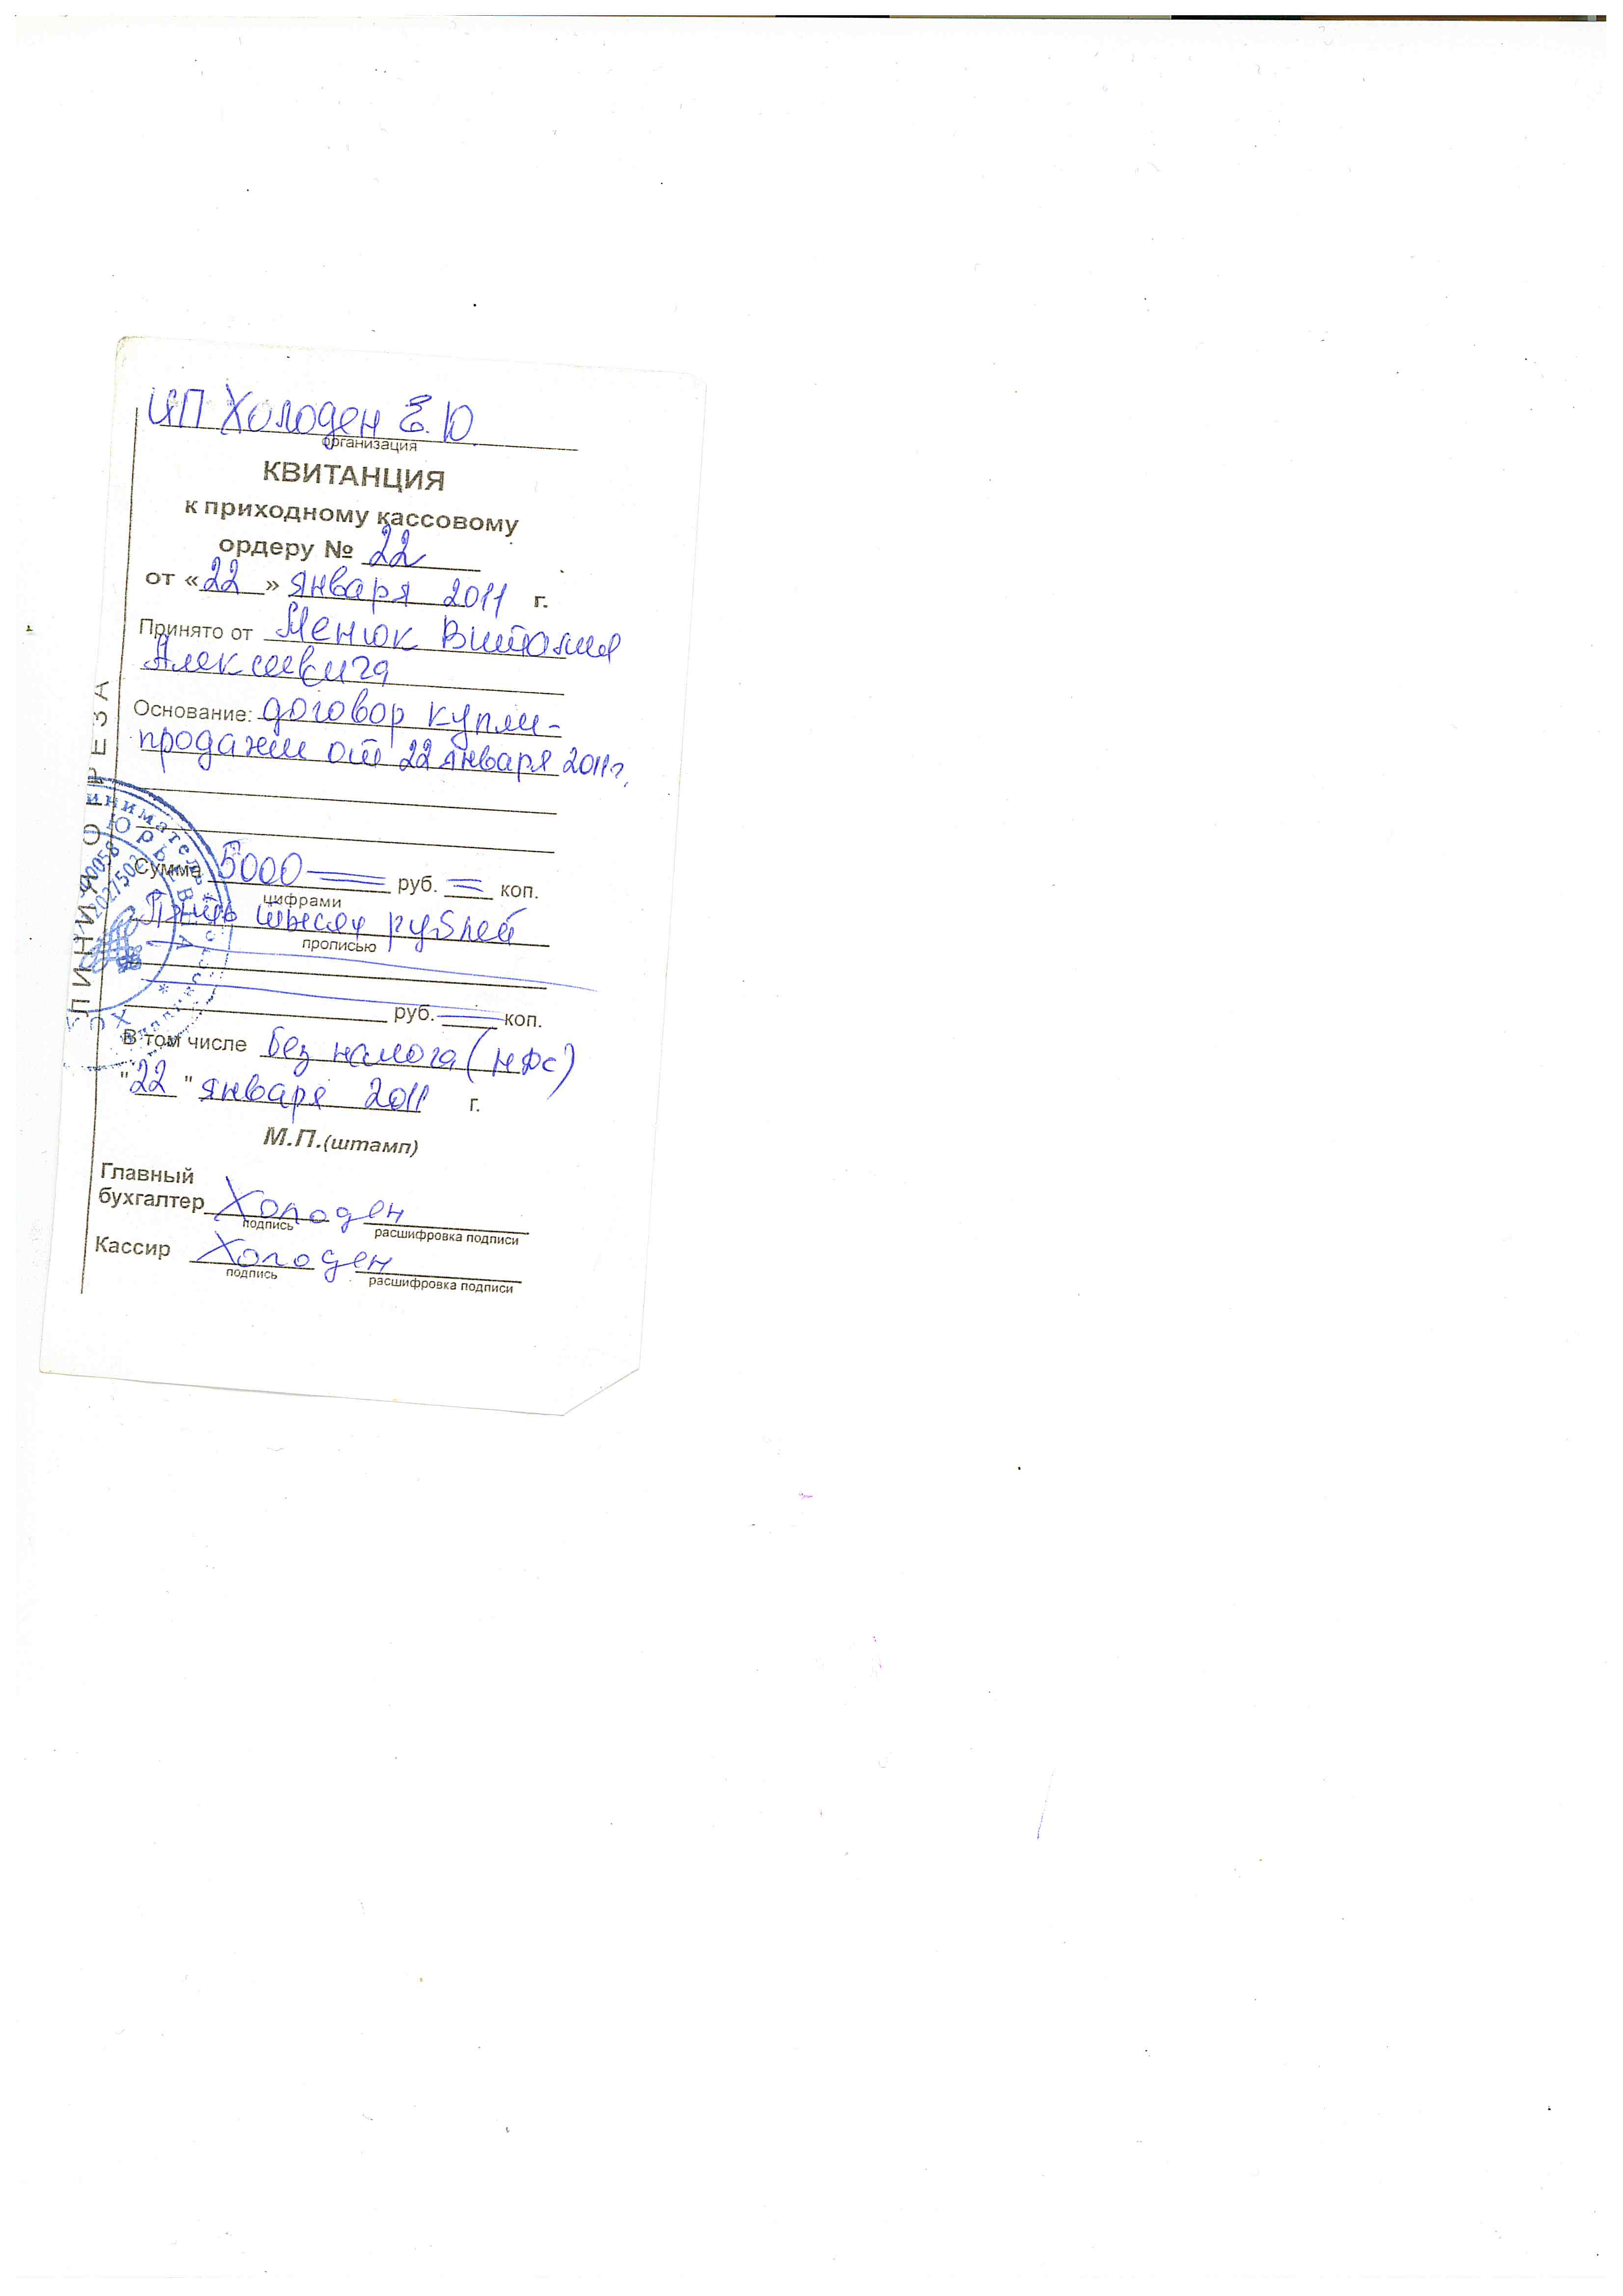 ИП Холоден Е.Ю.
организация
КВИТАНЦИЯ
к приходному кассовому
ордеру № 22
от «22» января 2011 г.
Принято от Менюк Виталия
Алексеевича
Основание: договор купли-
продажи от 22 января 2011 г.
Сумма 5000 руб. коп.
цифрами
Пять тысяч рублей
прописью
руб. коп.
В том числе без налога (НДС)
"22" января 2011 г.
М.П.(штамп)
Главный
бухгалтер Холоден
подпись расшифровка подписи
Кассир Холоден
подпись расшифровка подписи
ЛИНИЯ ОТРЕЗА